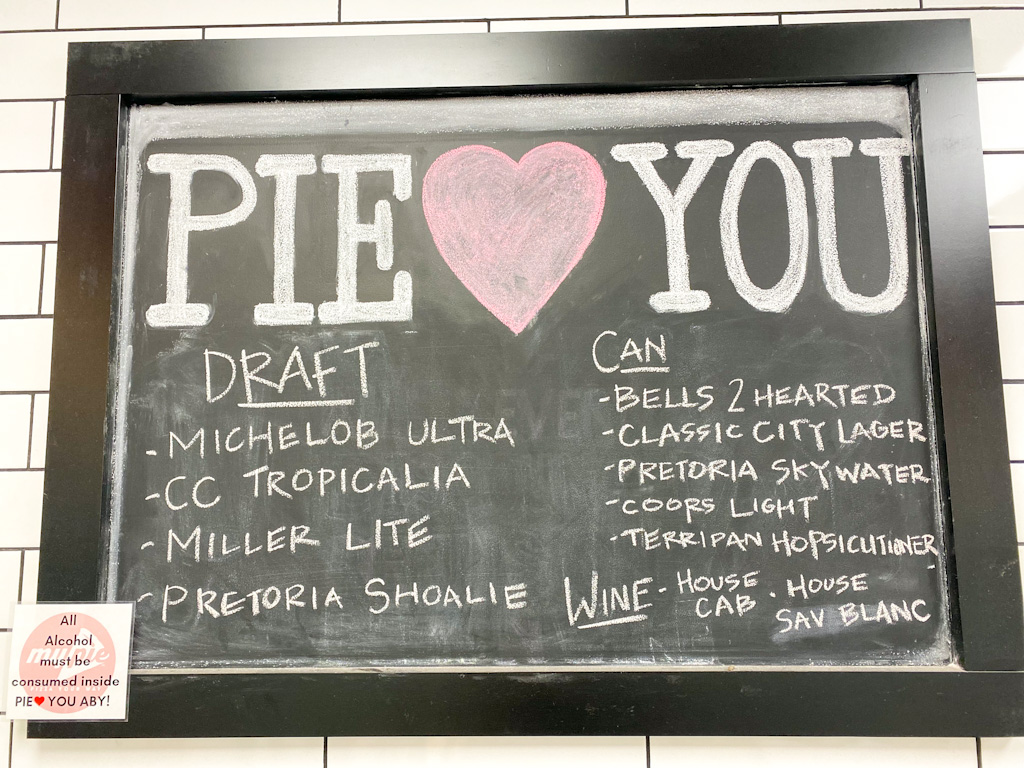 PIE YOU
DRAFT
- MICHELOB ULTRA
- CC TROPICALIA
- MILLER LITE
- PRETORIA SHOALIE
CAN
- BELLS 2 HEARTED
- CLASSIC CITY LAGER
- PRETORIA SKYWATER
- COORS LIGHT
- TERRIPAN HOPSICUTIONER
WINE - HOUSE CAB . HOUSE SAV BLANC
All
Alcohol
must be
consumed inside
PIE♥YOU ABY!